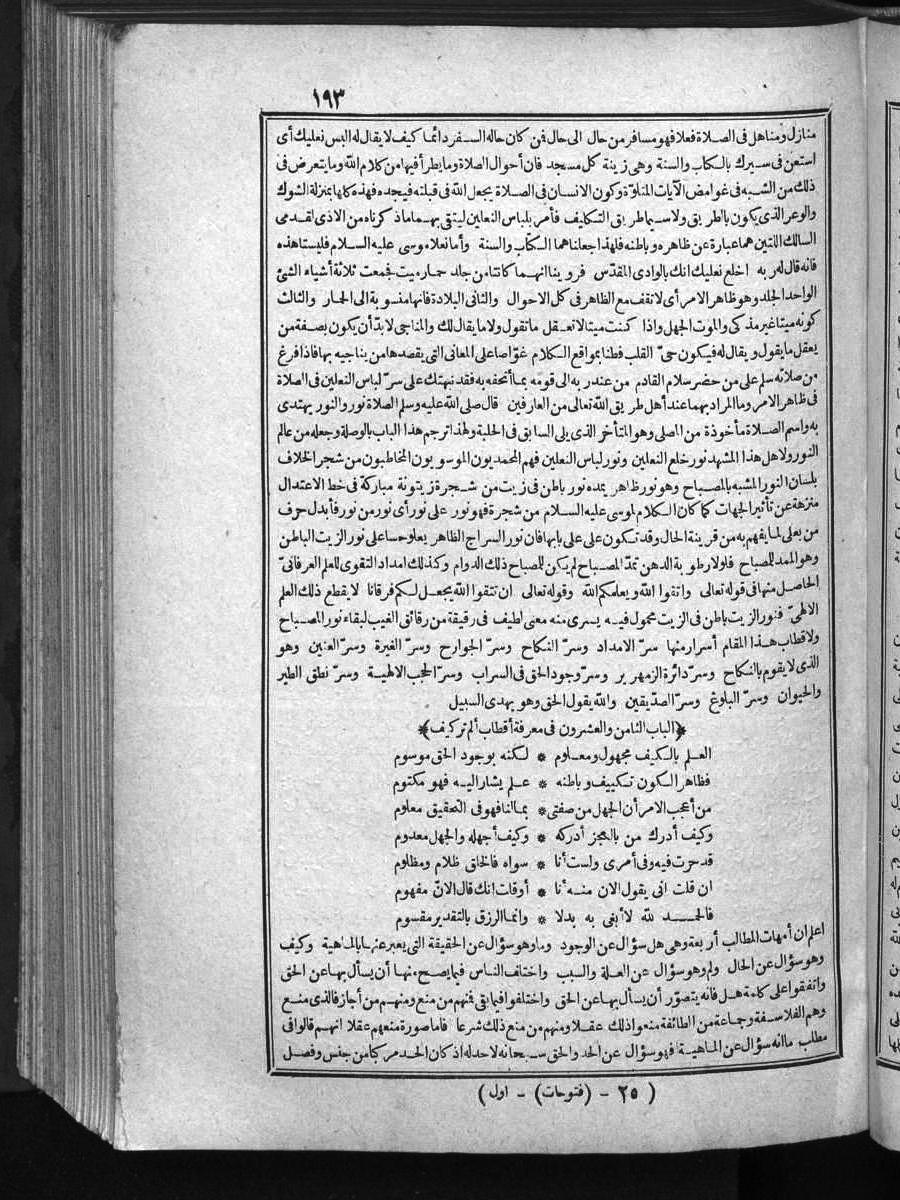 ١٩٣
منازل ومناهل فى الصلاة فعلا فهو مسافر من حال الى حال فمن كان حاله السفر دائما كيف لا يقال له البس نعليك أى
استعن فى سيرك بالكتاب والسنة وهى زينة كل مسجد فان أحوال الصلاة وما يطرأ فيها من كلام الله وما يتعرض فى
ذلك من الشبه فى غوامض الآيات المتلوّة وكون الانسان فى الصلاة يجعل الله فى قبلته فيجده فهذه كلها بمنزلة الشوك
والوعر الذى يكون بالطريق ولا سيما طريق التكليف فأمر بلباس النعلين ليتقى بهما ما ذكرناه من الاذى لقدمى
السالك اللتين هما عبارة عن ظاهره وباطنه فلهذا جعلناهما الكتاب والسنة وأما نعلا موسى عليه السلام فليستا هذه
فانه قال له ربه اخلع نعليك انك بالوادى المقدّس فروينا انهما كانتا من جلد حمار ميت فجمعت ثلاثة أشياء الشئ
الواحد الجلد وهو ظاهر الامر أى لا تقف مع الظاهر فى كل الاحوال والثانى البلادة فانها منسوبة الى الحمار والثالث
كونه ميتا غير مذكى والموت الجهل واذا كنت ميتا لا تعقل ما تقول ولا ما يقال لك والمناجى لا بدّ أن يكون بصفة من
يعقل ما يقول ويقال له فيكون حىّ القلب فطنا بمواقع الكلام غوّاصا على المعانى التى يقصدها من يناجيه بها فاذا فرغ
من صلاته سلم على من حضر سلام القادم من عند ربه الى قومه بما أتحفه به فقد نبهتك على سرّ لباس النعلين فى الصلاة
فى ظاهر الامر وما المراد بهما عند أهل طريق الله تعالى من العارفين قال صلى الله عليه وسلم الصلاة نور والنور يهتدى
به واسم الصلاة مأخوذة من المصلى وهو المتأخر الذى يلى السابق فى الحلبة ولهذا ترجم هذا الباب بالوصلة وجعله من عالم
النور ولاهل هذا المشهد نور خلع النعلين ونور لباس النعلين فهم المحمديون الموسويون المخاطبون من شجر الخلاف
بلسان النور المشبه بالمصباح وهو نور ظاهر يمده نور باطن فى زيت من شجرة زيتونة مباركة فى خط الاعتدال
منزهة عن تأثير الجهات كما كان الكلام لموسى عليه السلام من شجرة فهو نور على نور أى نور من نور فأبدل حرف
من بعلى لما يفهم به من قرينة الحال وقد تكون على على بابها فان نور السراج الظاهر يعلو حسا على نور الزيت الباطن
وهو الممد للمصباح فلولا رطوبة الدهن تمدّ المصباح لم يكن للمصباح ذلك الدوام وكذلك امداد التقوى للعلم العرفانىّ
الحاصل منها فى قوله تعالى واتقوا الله ويعلمكم الله وقوله تعالى ان تتقوا الله يجعل لكم فرقانا لا يقطع ذلك العلم
الالهىّ فنور الزيت باطن فى الزيت محمول فيه يسرى منه معنى لطيف فى رقيقة من رقائق الغيب لبقاء نور المصباح
ولاقطاب هذا المقام أسرار منها سرّ الامداد وسرّ النكاح وسرّ الجوارح وسرّ الغيرة وسرّ العنين وهو
الذى لا يقوم بالنكاح وسرّ دائرة الزمهرير وسرّ وجود الحق فى السراب وسرّ الحجب الالهية وسرّ نطق الطير
والحيوان وسرّ البلوغ وسرّ الصدّيقين والله يقول الحق وهو يهدى السبيل
﴿الباب الثامن والعشرون فى معرفة أقطاب ألم تر كيف﴾
العلم بالكيف مجهول ومعلوم * لكنه بوجود الحق موسوم
فظاهر الكون تكييف وباطنه * علم يشار اليه فهو مكتوم
من أعجب الامر أن الجهل من صفتى * بما لنا فهو فى التحقيق معلوم
وكيف أدرك من بالعجز أدركه * وكيف أجهله والجهل معدوم
قد حرت فيه وفى أمرى ولست أنا * سواه فالخلق ظلام ومظلوم
ان قلت انى يقول الان منه أنا * أو قلت انك قال الانّ مفهوم
فالحمد لله لا أبغى به بدلا * وانما الرزق بالتقدير مقسوم
اعلم ان أمهات المطالب أربعة وهى هل سؤال عن الوجود وما وهو سؤال عن الحقيقة التى يعبر عنها بالماهية وكيف
وهو سؤال عن الحال ولم وهو سؤال عن العلة والسبب واختلف الناس فيما يصح منها أن يسأل بها عن الحق
واتفقوا على كلمة هل فانه يتصوّر أن يسأل بها عن الحق واختلفوا فيما بقى فمنهم من منع ومنهم من أجاز فالذى منع
وهم الفلاسفة وجماعة من الطائفة منعوا ذلك عقلا ومنهم من منع ذلك شرعا فاما صورة منعهم عقلا انهم قالوا فى
مطلب ما انه سؤال عن الماهية فهو سؤال عن الحد والحق سبحانه لا حد له اذ كان الحد مركبا من جنس وفصل
(٢٥ - (فتوحات) - اول)